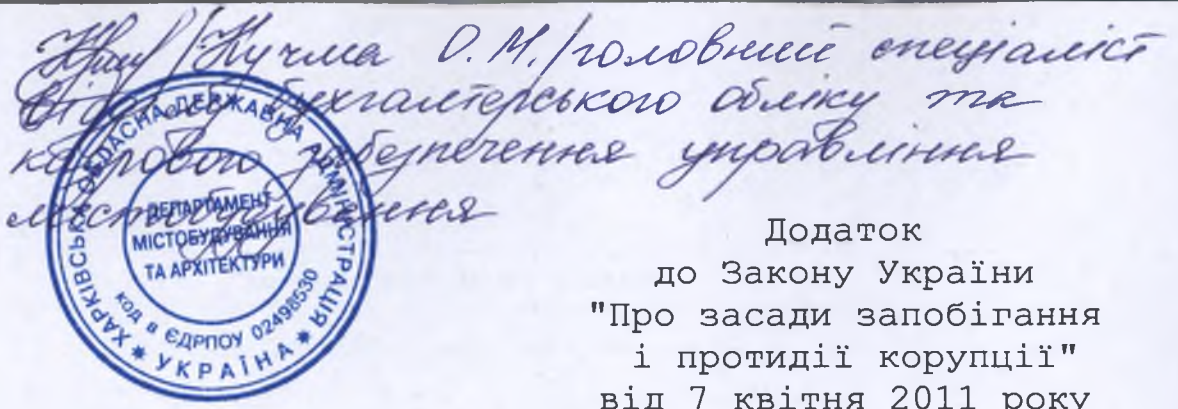 /Кучма О.М./головний спеціаліст
відділу бухгалтерського обліку та
кадрового забезпечення управління
містобудування
ХАРКІВСЬКА ОБЛАСНА ДЕРЖАВНА АДМІНІСТРАЦІЯ
ДЕПАРТАМЕНТ
МІСТОБУДУВАННЯ
ТА АРХІТЕКТУРИ
код в ЄДРПОУ 02498530
* УКРАЇНА *
Додаток
до Закону України
"Про засади запобігання
і протидії корупції"
від 7 квітня 2011 року